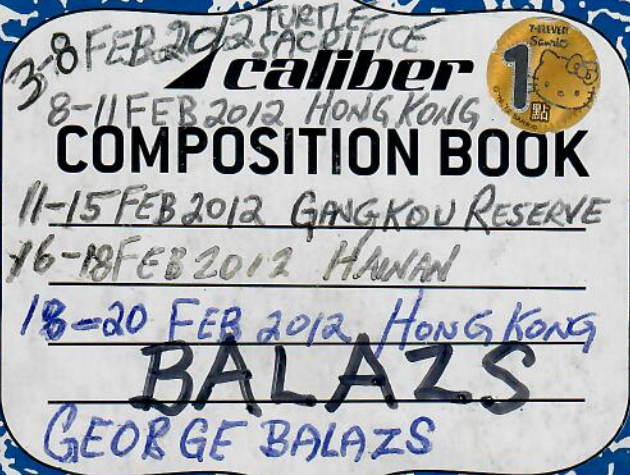 3-8 FEB 2012 TURTLE SACRIFICE
caliber
7-ELEVEN
Sanrio
1
點
8-11 FEB 2012 HONG KONG
COMPOSITION BOOK
11-15 FEB 2012 GANGKOU RESERVE
16-18 FEB 2012 HAINAN
18-20 FEB 2012 HONG KONG
BALAZS
GEORGE BALAZS